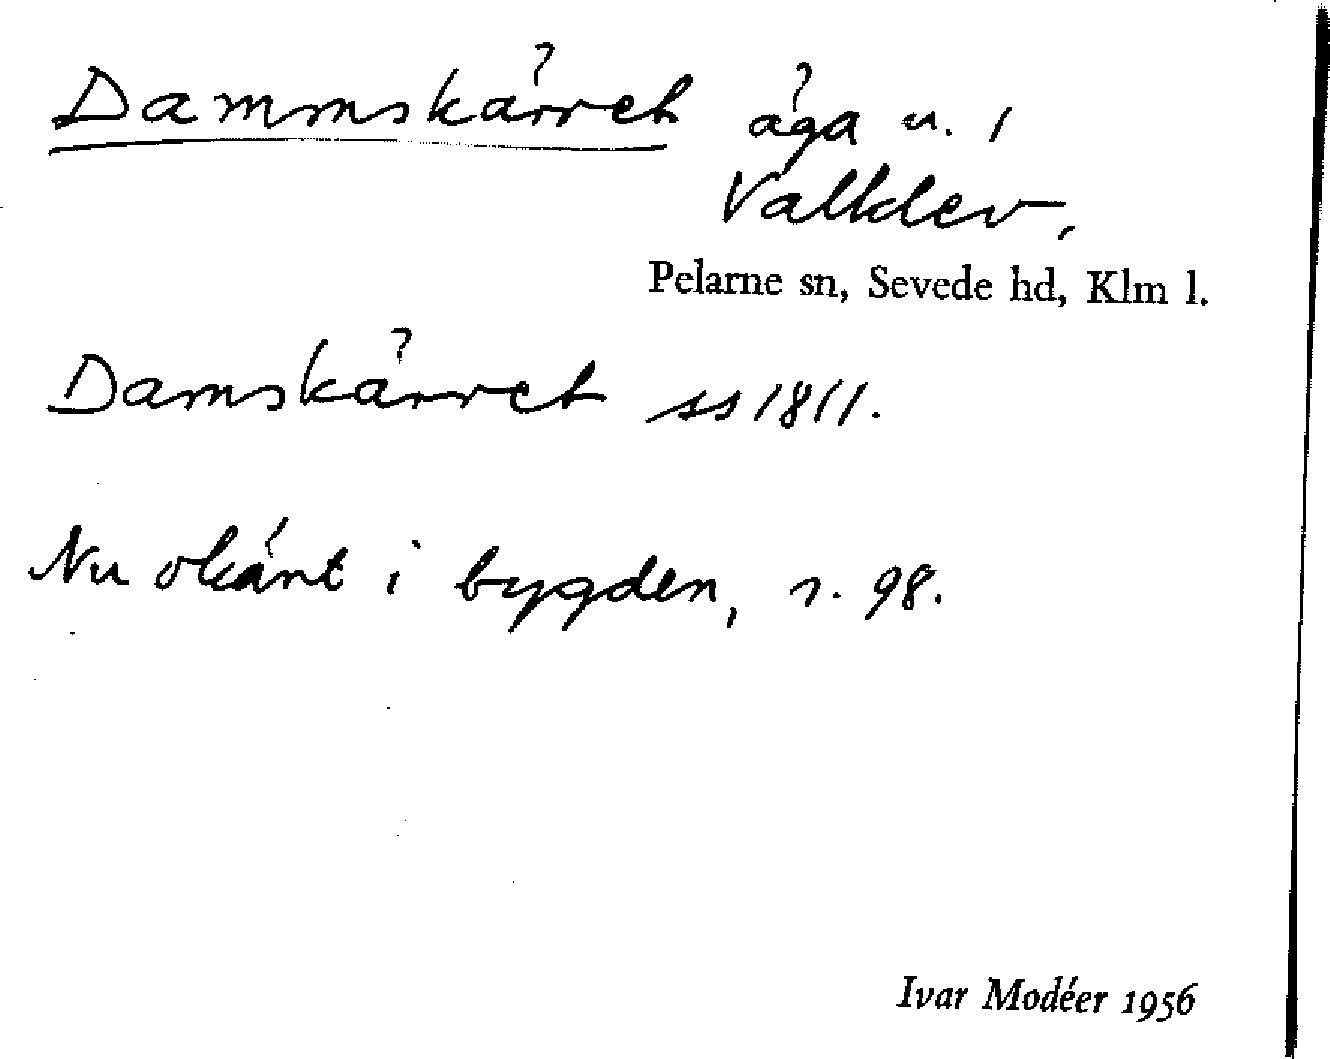 Dammskärret äga n. 1
Valklev,
Pelarne sn, Sevede hd, Klm l.
Damskärret ss 1811.
Nu okänt i bygden, r. 98.
Ivar Modéer 1956